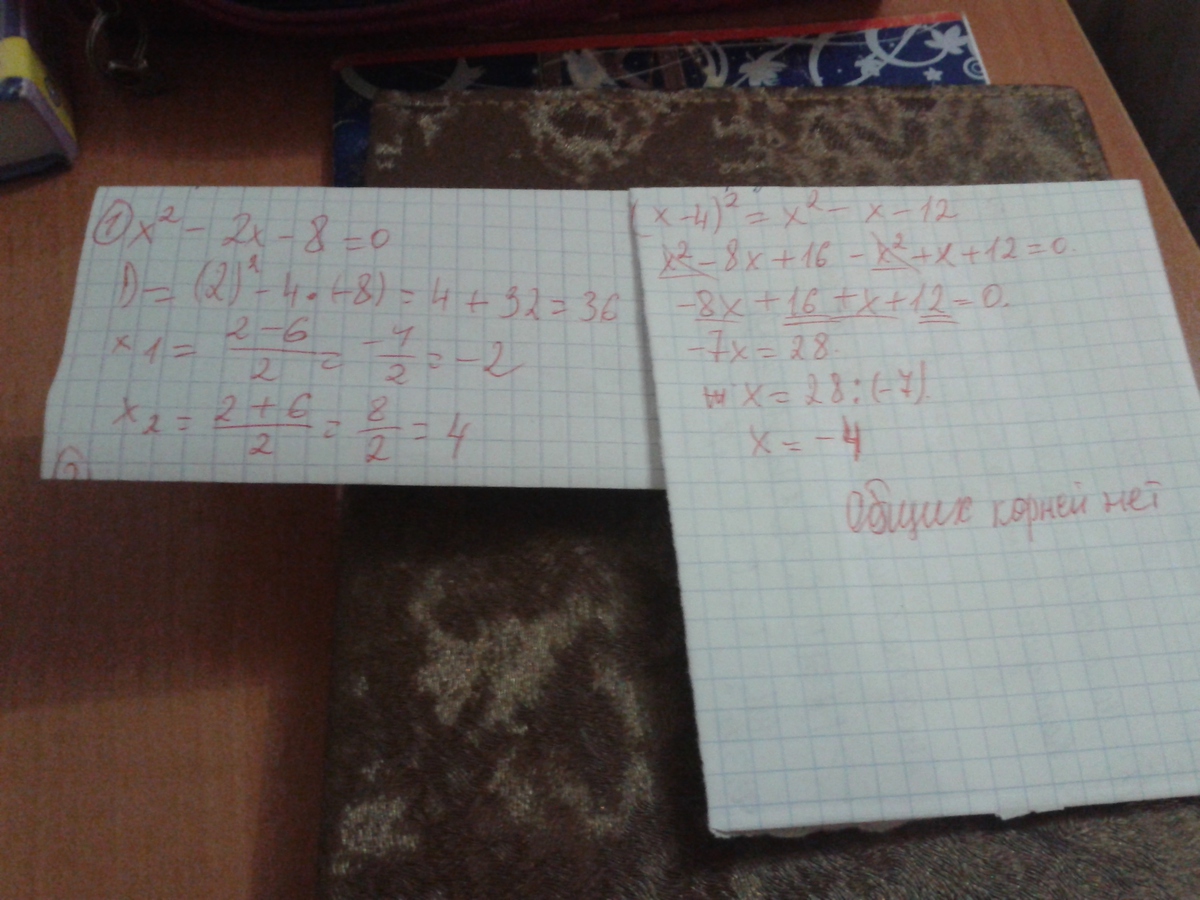 ① x² - 2x - 8 = 0
D = (2)² - 4 · (-8) = 4 + 32 = 36
x1 = \frac{2-6}{2} = \frac{-4}{2} = -2
x2 = \frac{2+6}{2} = \frac{8}{2} = 4
(x-4)² = x² - x - 12
x² - 8x + 16 - x² + x + 12 = 0.
-8x + 16 + x + 12 = 0.
-7x = 28.
x = 28 : (-7).
x = -4
Общих корней нет